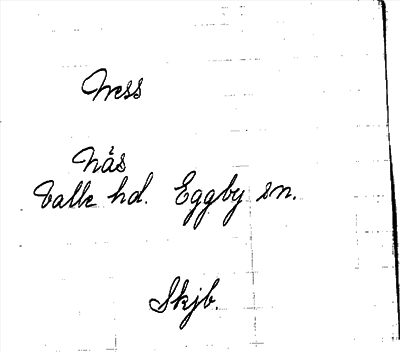 Næss
Nås
Valle hd. Eggby sn.
Skjb.